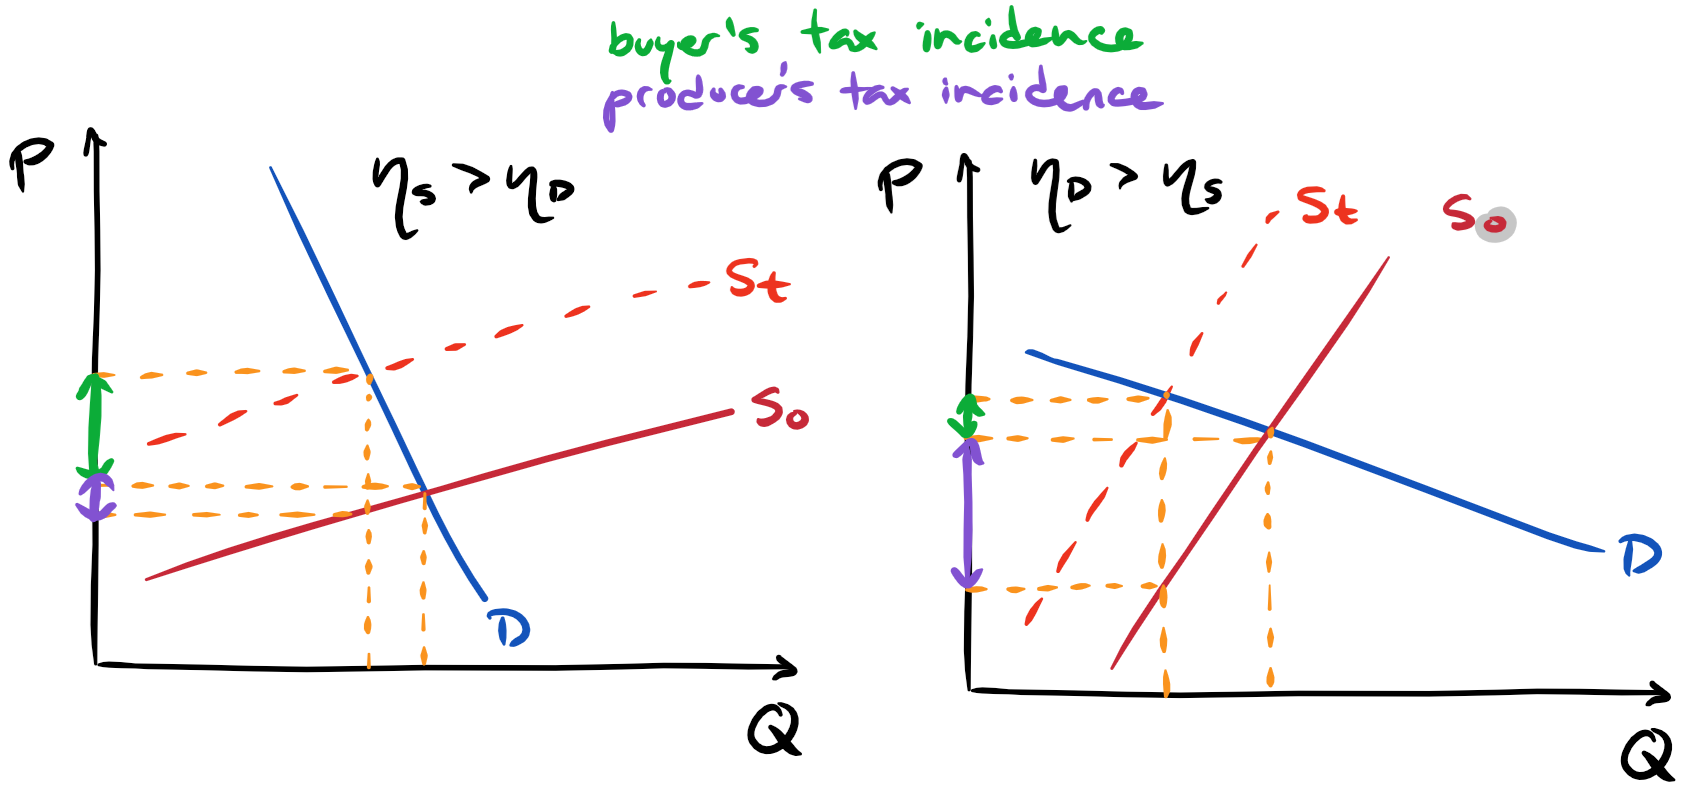 buyer's tax incidence
producer's tax incidence
P
ηs > ηD
St
So
D
Q
P
ηD > ηs
St
So
D
Q